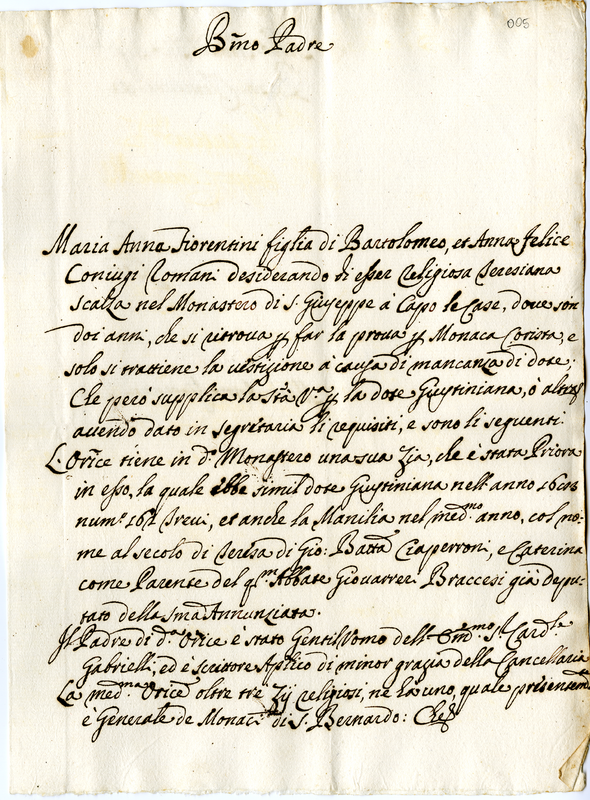 005
B.mo Padre
Maria Anna Fiorentini figlia di Bartolomeo, et Anna Felice
Coniugi Romani desiderando di esser religiosa Teresiana
scalza nel Monastero di S. Giuseppe à Capo le Case, dove son
doi anni, che si ritrova p far la prova p Monaca Corista, e
solo si trattiene la vestizione à causa di mancanza di dote.
Che però supplica la S.tà V.ra p la dote Giustiniana, ò altra
avendo dato in segretaria li requisiti, e sono li seguenti.
L'Or.ice tiene in d.o Monastero una sua Zia, che è stata Priora
in esso, la quale ebbe simil dote Giustiniana nell'anno
num.o Brevi, et anche la Manilia nel med.mo anno, col no-
me al secolo di Teresa di Gio: Batta Ciaperroni, e Caterina
come Parente del q.m Abbate Braccesi già Depu-
tato della SS.ma Annunziata.
Il Padre di d.a Or.ice è stato GentilVomo dell' Em.mo S.r Card.le
Gabrielli, ed è scrittore Ap.lico di minor grazia della Cancellaria
La med.ma Or.ice oltre tre Zij religiosi, ne hà uno, quale presentem.te
è Generale de Monaci di S. Bernardo: Che